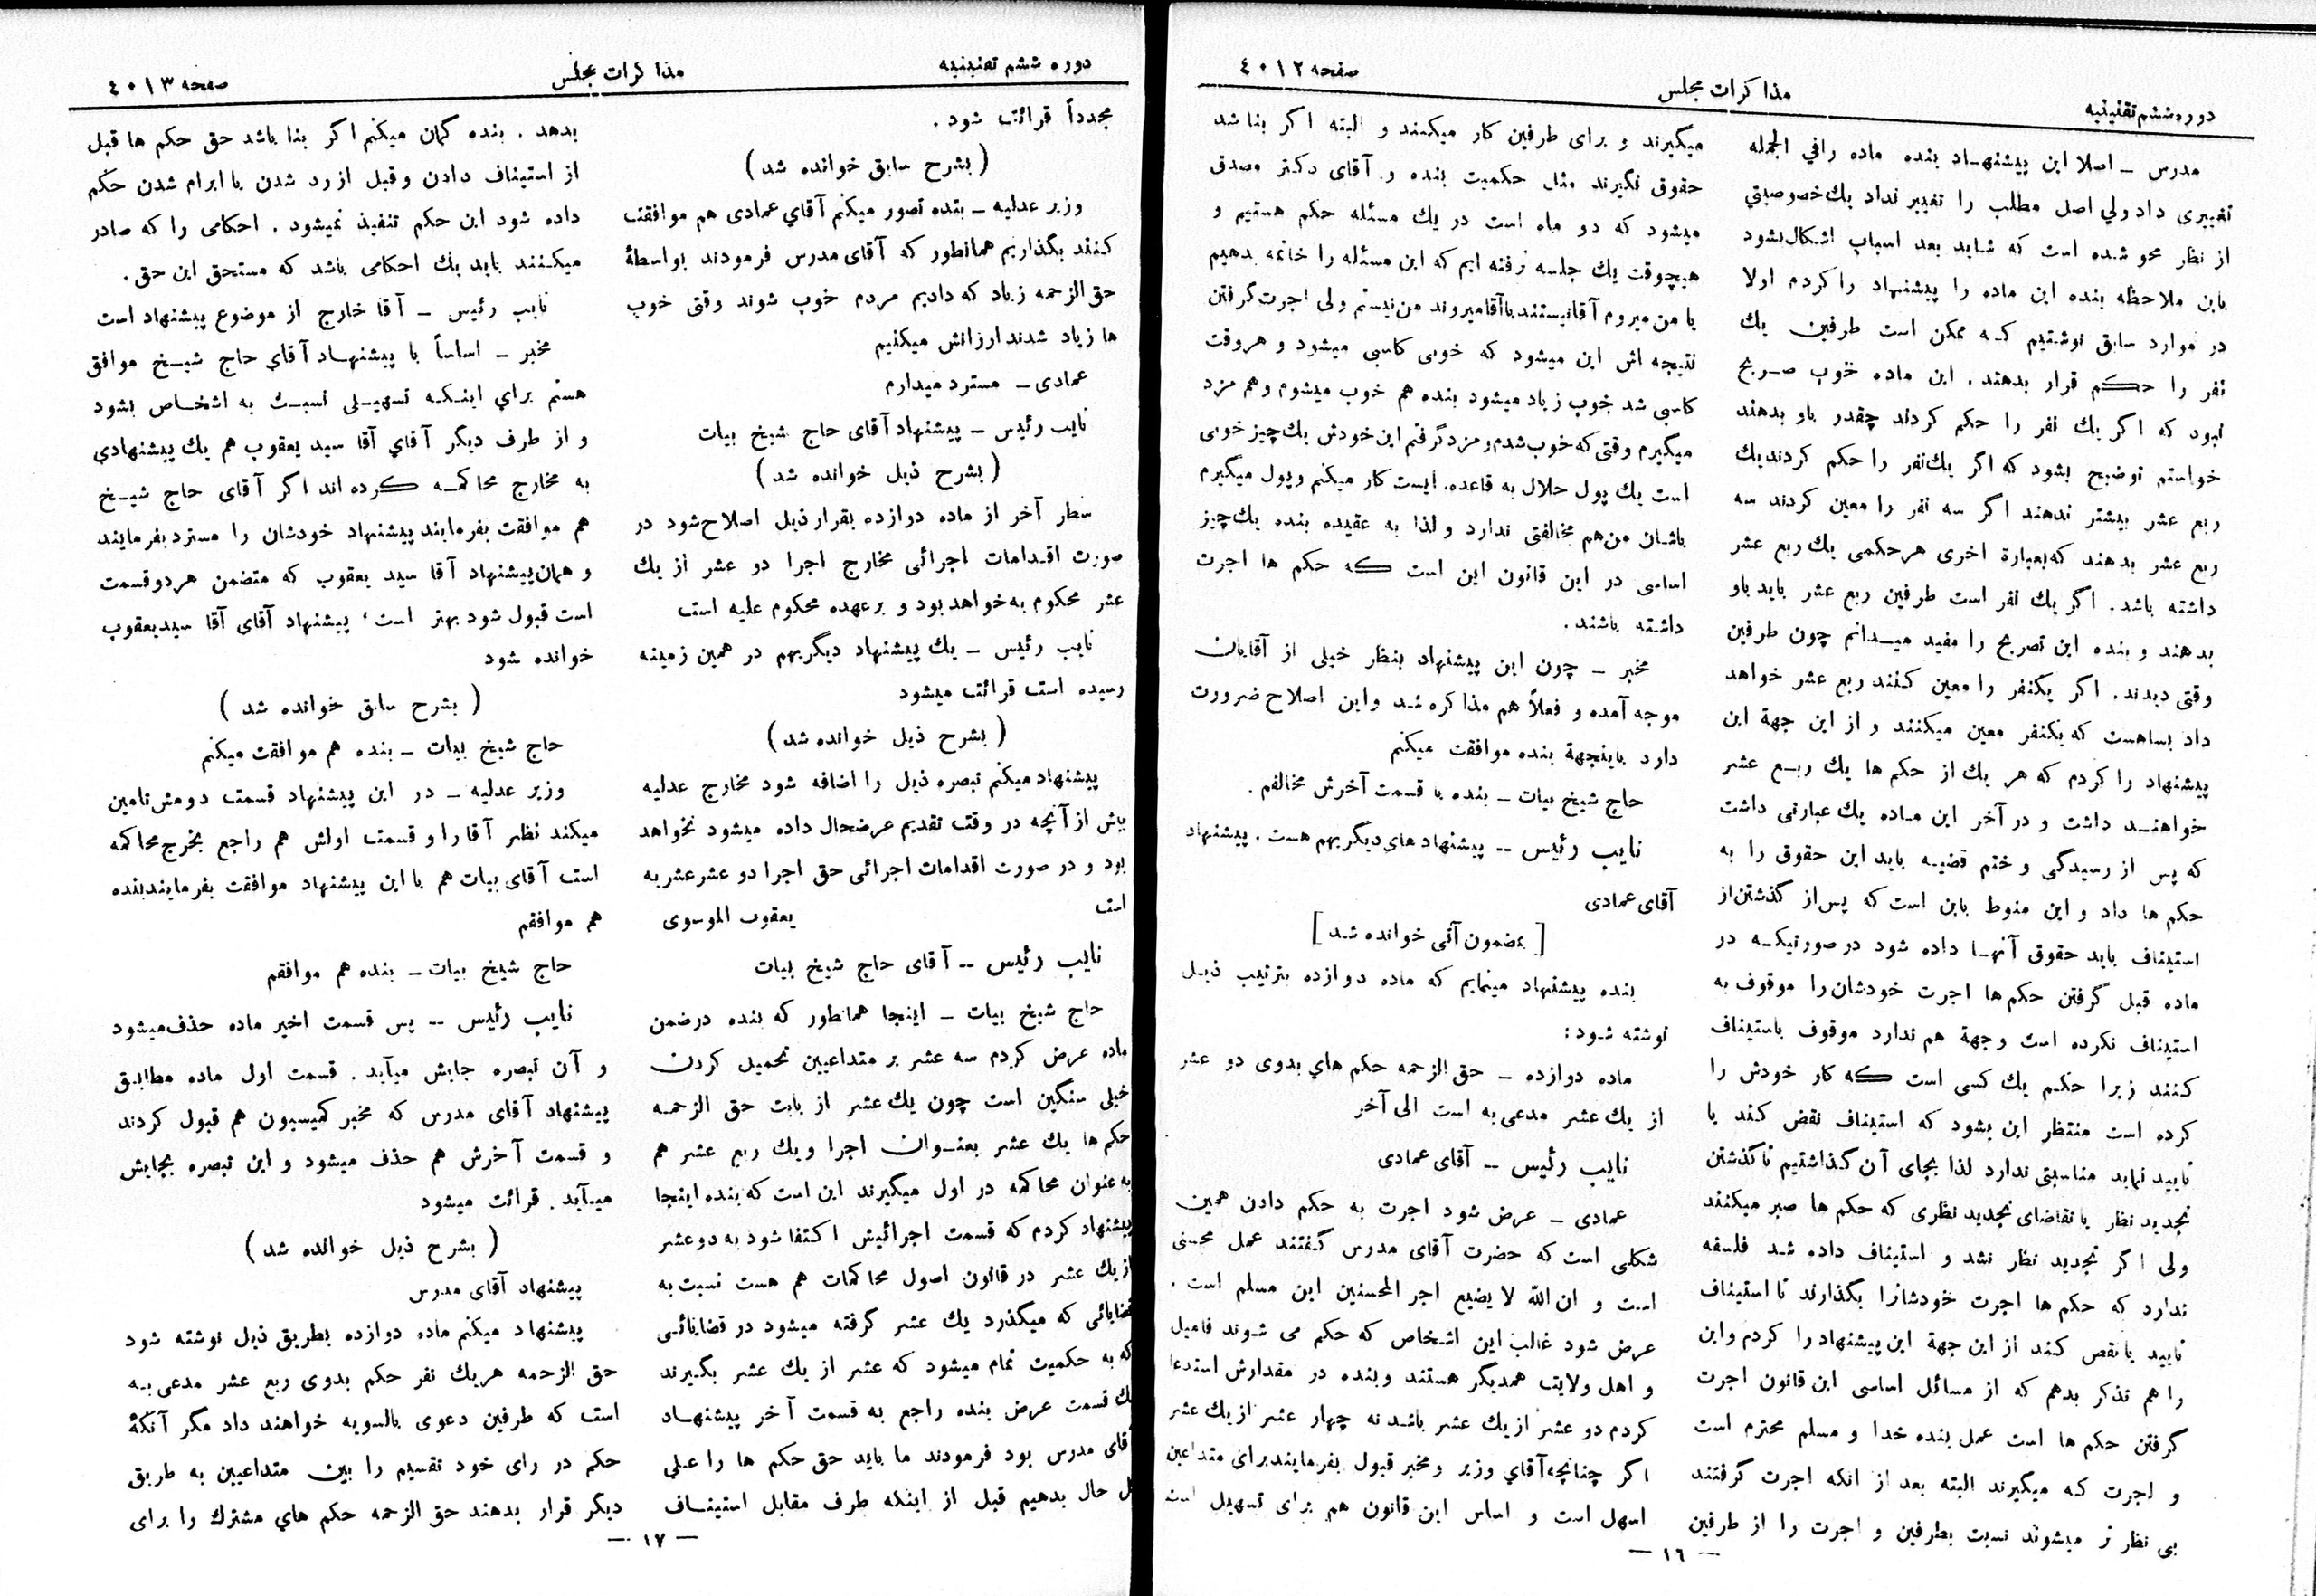 دوره ششم تقنینیه
مذاکرات مجلس
صفحه ٤٠١٢
مدرس ـ اصلا این پیشنهاد بنده ماده رافي الجمله
تغییری داد ولي اصل مطلب را تغییر نداد یك خصوصیتي
از نظر محو شده است که شاید بعد اسباب اشکال بشود
باین ملاحظه بنده این ماده را پیشنهاد را کردم اولا
در موارد سابق نوشتیم که ممکن است طرفین یك
نفر را حکم قرار بدهند . این ماده خوب صریح
نبود که اگر یك نفر را حکم کردند چقدر باو بدهند
خواستم توضیح بشود که اگر یك نفر را حکم کردند یك
ربع عشر بیشتر ندهند اگر سه نفر را معین کردند سه
ربع عشر بدهند که بعبارة اخری هر حکمی یك ربع عشر
داشته باشد . اگر یك نفر است طرفین ربع عشر باید باو
بدهند و بنده این تصریح را مفید میدانم چون طرفین
وقتی دیدند . اگر یکنفر را معین کنند ربع عشر خواهد
داد بساهست که یکنفر معین میکنند و از این جهة این
پیشنهاد را کردم که هر یك از حکم ها یك ربع عشر
خواهند داشت و در آخر این ماده یك عبارتی داشت
که پس از رسیدگی و ختم قضیه باید این حقوق را به
حکم ها داد و این منوط باین است که پس از گذشتن از
استیناف باید حقوق آنها داده شود در صورتیکه در
ماده قبل گرفتن حکم ها اجرت خودشان را موقوف به
استیناف نکرده است وجهة هم ندارد موقوف باستیناف
کنند زیرا حکم یك کسی است که کار خودش را
کرده است منتظر این بشود که استیناف نقض کند یا
تایید نماید مناسبتی ندارد لذا بجای آن گذاشتیم تا گذشتن
تجدید نظر یا تقاضای تجدید نظری که حکم ها صبر میکنند
ولی اگر تجدید نظر نشد و استیناف داده شد فلسفه
ندارد که حکم ها اجرت خودشانرا بگذارند تا استیناف
تایید یا نقص کند از این جهة این پیشنهاد را کردم و این
را هم تذکر بدهم که از مسائل اساسی این قانون اجرت
گرفتن حکم ها است عمل بنده خدا و مسلم محترم است
و اجرت که میگیرند البته بعد از انکه اجرت گرفتند
بی نظر تر میشوند نسبت بطرفین و اجرت را از طرفین
میگیرند و برای طرفین کار میکنند و البته اگر بنا شد
حقوق نگیرند مثل حکمیت بنده و آقای دکتر مصدق
میشود که دو ماه است در یك مسئله حکم هستیم و
هیچوقت یك جلسه نرفته ایم که این مسئله را خاتمه بدهیم
یا من میروم آقا نیستند یا آقا میروند من نیستم ولی اجرت گرفتن
نتیجه اش این میشود که خوبی کاسبی میشود و هر وقت
کاسبی شد خوب زیاد میشود بنده هم خوب میشوم و هم مزد
میگیرم وقتی که خوب شدم و مزد گرفتم این خودش یك چیز خوبی
است یك پول حلال به قاعده. ایست کار میکنم و پول میگیرم
باشان من هم مخالفتی ندارد و لذا به عقیده بنده یك چیز
اساسی در این قانون این است که حکم ها اجرت
داشته باشند .
مخبر ـ چون این پیشنهاد بنظر خیلی از آقایان
موجه آمده و فعلاً هم مذاکره شد و این اصلاح ضرورت
دارد باینجهة بنده موافقت میکنم
حاج شیخ بیات ـ بنده با قسمت آخرش مخالفم .
نایب رئیس -- پیشنهاد های دیگر بهم هست . پیشنهاد
آقای عمادی
[ بمضمون آتی خوانده شد ]
بنده پیشنهاد مینمایم که ماده دوازده بترتیب ذیل
نوشته شود :
ماده دوازده ـ حق الزحمه حکم هاي بدوی دو عشر
از یك عشر مدعی به است الی آخر
نایب رئیس -- آقای عمادی
عمادی ـ عرض شود اجرت به حکم دادن همین
شکلی است که حضرت آقای مدرس گفتند عمل محسنی
است و ان الله لا یضیع اجر المحسنین این مسلم است .
عرض شود غالب این اشخاص که حکم می شوند فامیل
و اهل ولایت همدیگر هستند و بنده در مقدارش استدعا
کردم دو عشر از یك عشر باشد نه چهار عشر از یك عشر
اگر چنانچه آقاي وزیر و مخبر قبول بفرمایند برای متداعین
اسهل است و اساس این قانون هم برای تسهیل است
— ١٦ —
دوره ششم تقنینیه
مذاکرات مجلس
صفحه ٤٠١٣
مجدداً قرائت شود .
( بشرح سابق خوانده شد )
وزیر عدلیه ـ بنده تصور میکنم آقاي عمادی هم موافقت
کنند بگذاریم همانطور که آقای مدرس فرمودند بواسطۀ
حق الزحمه زیاد که دادیم مردم خوب شوند وقتی خوب
ها زیاد شدند ارزانش میکنیم
عمادی ـ مسترد میدارم
نایب رئیس ـ پیشنهاد آقای حاج شیخ بیات
( بشرح ذیل خوانده شد )
سطر آخر از ماده دوازده بقرار ذیل اصلاح شود در
صورت اقدامات اجرائی مخارج اجرا دو عشر از یك
عشر محکوم به خواهد بود و بر عهده محکوم علیه است
نایب رئیس ـ یك پیشنهاد دیگر بهم در همین زمینه
رسیده است قرائت میشود
( بشرح ذیل خوانده شد )
پیشنهاد میکنم تبصره ذیل را اضافه شود مخارج عدلیه
بیش از آنچه در وقت تقدیم عرضحال داده میشود نخواهد
بود و در صورت اقدامات اجرائی حق اجرا دو عشر عشر به
است یعقوب الموسوی
نایب رئیس -- آقای حاج شیخ بیات
حاج شیخ بیات ـ اینجا همانطور که بنده درضمن
ماده عرض کردم سه عشر بر متداعیین تحمیل کردن
خیلی سنگین است چون یك عشر از بابت حق الزحمه
حکم ها یك عشر بعنوان اجرا و یك ربع عشر هم
به عنوان محاکمه در اول میگیرند این است که بنده اینجا
پیشنهاد کردم که قسمت اجرائیش اکتفا شود به دو عشر
از یك عشر در قانون اصول محاکمات هم هست نسبت به
قضایائی که میگذرد یك عشر گرفته میشود در قضایائی
که به حکمیت تمام میشود که عشر از یك عشر بگیرند
یك قسمت عرض بنده راجع به قسمت آخر پیشنهاد
آقای مدرس بود فرمودند ما باید حق حکم ها را علی
کل حال بدهیم قبل از اینکه طرف مقابل استیناف
بدهد . بنده گمان میکنم اگر بنا باشد حق حکم ها قبل
از استیناف دادن و قبل از رد شدن یا ابرام شدن حکم
داده شود این حکم تنفیذ نمیشود . احکامی را که صادر
میکنند باید یك احکامی باشد که مستحق این حق .
نایب رئیس ـ آقا خارج از موضوع پیشنهاد است
مخبر ـ اساساً با پیشنهاد آقاي حاج شیخ موافق
هستم براي اینکه تسهیلی نسبت به اشخاص بشود
و از طرف دیگر آقاي آقا سید یعقوب هم یك پیشنهادي
به مخارج محاکمه کرده اند اگر آقای حاج شیخ
هم موافقت بفرمایند پیشنهاد خودشان را مسترد بفرمایند
و همان پیشنهاد آقا سید یعقوب که متضمن هر دو قسمت
است قبول شود بهتر است ، پیشنهاد آقای آقا سید یعقوب
خوانده شود
( بشرح سابق خوانده شد )
حاج شیخ بیات ـ بنده هم موافقت میکنم
وزیر عدلیه ـ در این پیشنهاد قسمت دومش تامین
میکند نظر آقا را و قسمت اولش هم راجع بخرج محاکمه
است آقای بیات هم با این پیشنهاد موافقت بفرمایند بنده
هم موافقم
حاج شیخ بیات ـ بنده هم موافقم
نایب رئیس -- پس قسمت اخیر ماده حذف میشود
و آن تبصره جایش میآید . قسمت اول ماده مطابق
پیشنهاد آقای مدرس که مخبر کمیسیون هم قبول کردند
و قسمت آخرش هم حذف میشود و این تبصره بجایش
میآید . قرائت میشود
( بشرح ذیل خوانده شد )
پیشنهاد آقای مدرس
پیشنهاد میکنم ماده دوازده بطریق ذیل نوشته شود
حق الزحمه هر یك نفر حکم بدوی ربع عشر مدعی به
است که طرفین دعوی بالسویه خواهند داد مگر آنکۀ
حکم در رای خود تقسیم را بین متداعیین به طریق
دیگر قرار بدهند حق الزحمه حکم هاي مشترك را برای
— ١٧ —